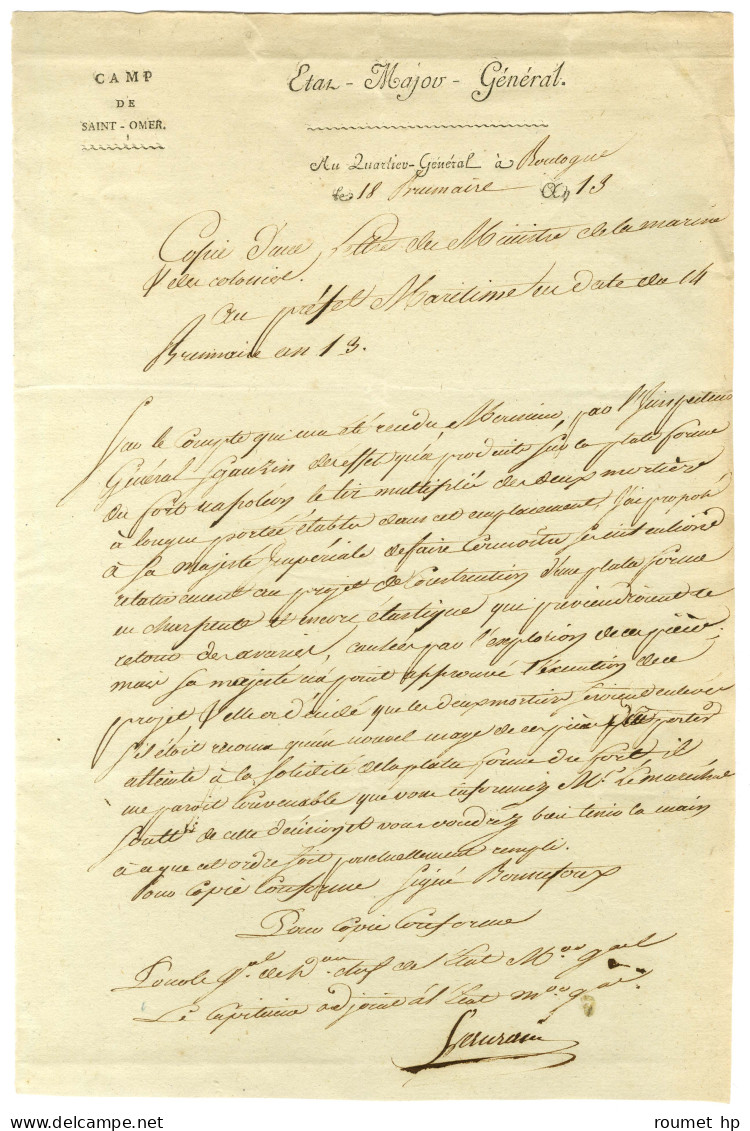 CAMP
DE
SAINT-OMER.
Etat-Major-Général.
Au Quartier-Général à Boulogne
le 18 Brumaire An 13
Copie d'une Lettre du Ministre de la marine
& des colonies.
Au préfet Maritime en date du 14
Brumaire an 13.
Par le Compte qui m'a été rendu Monsieur, par l'Inspecteur
Général Sganzin des effets qu'a produits sur la plate forme
du fort napoléon le tir multiplié des deux mortiers
à longue portée établis dans cet emplacement, J'ai proposé
à Sa majesté impériale de faire Connoitre ses intentions
relativement au projet de Construction d'une plate forme
en charpente et encore élastique qui previendroient le
retour des avaries, causées par l'explosion de ces pièces;
mais sa majesté n'a point approuvé l'exécution de ce
projet & elle a décidé que les deux mortiers seroient enlevés
s'il étoit reconnu qu'un nouvel usage de ces pièces portera
atteinte à la solidité de la plate forme du fort, il
me paroit Convenable que vous informiez Mr. Le maréchal
Soult de cette décision, et vous voudrez bien tenir la main
à ce que cet ordre soit ponctuellement rempli.
Pour Copie Conforme Signé Bonnefoux
Pour Copie Conforme
Pour le Gal. de Don. chef de l'Etat Mor. gal.
Le Capitaine adjoint à l'Etat mor. gal.
roumet hp